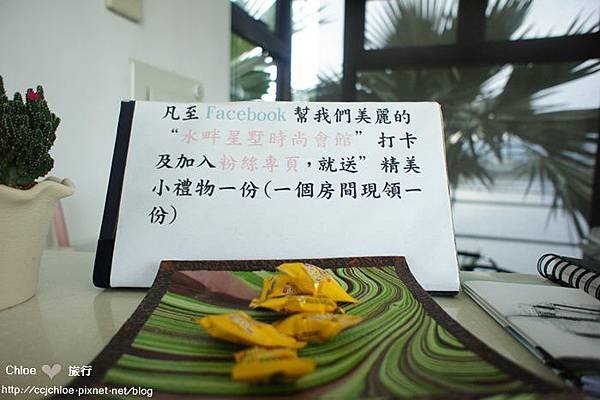 凡至 Facebook 幫我們美麗的
“水畔星墅時尚會館” 打卡
及加入粉絲專頁，就送”精美
小禮物一份(一個房間現領一
份)
Chloe ❤ 旅行
http://ccjchloe.pixnet.net/blog